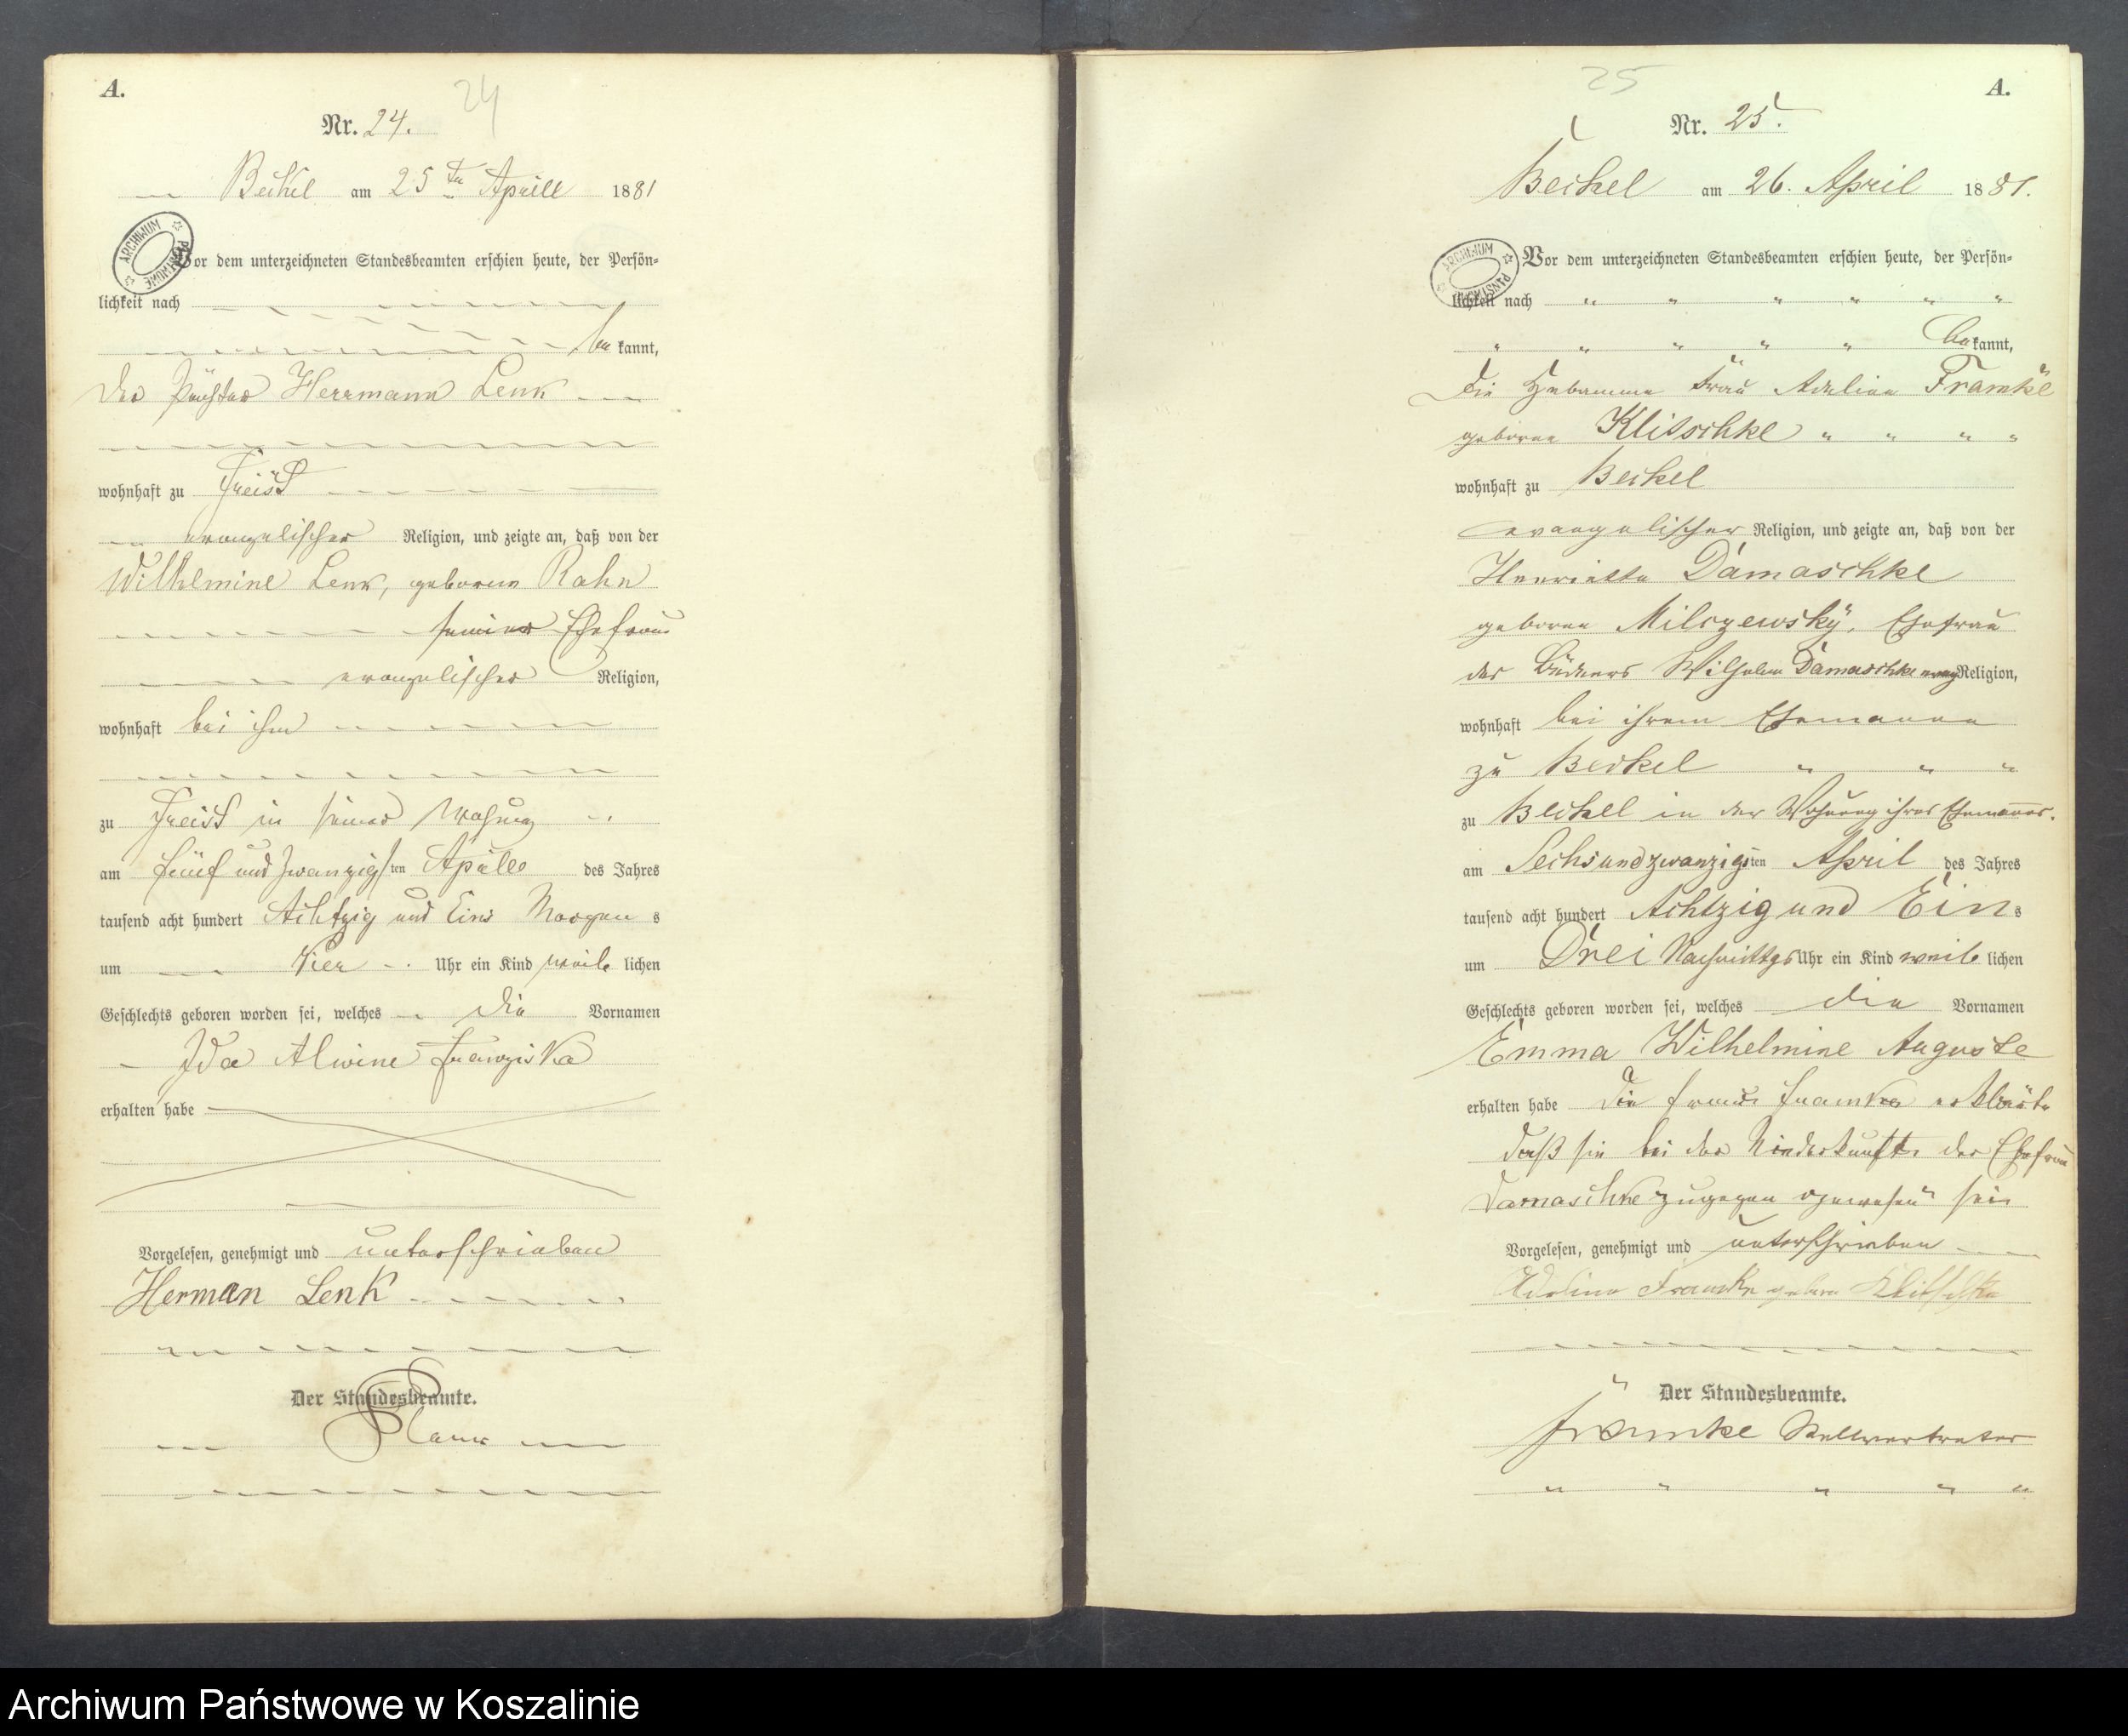 A.
24
Nr. 24.
Beckel am 25ten Aprill 1881
ARCHIWUM PAŃSTWOWE
Vor dem unterzeichneten Standesbeamten erschien heute, der Persön=
lichkeit nach
bekannt,
der Pächter Herrmann Lenk
wohnhaft zu Freist
evangelischer Religion, und zeigte an, daß von der
Wilhelmine Lenk, geborene Rahn
seiner Ehefrau
evangelischer Religion,
wohnhaft bei ihm
zu Freist in seiner Wohung
am fünf und zwanzigsten Aprill des Jahres
tausend acht hundert Achtzig und Eins Morgens
um Vier Uhr ein Kind weiblichen
Geschlechts geboren worden sei, welches die Vornamen
Ida Alwine Franziska
erhalten habe
Vorgelesen, genehmigt und unterschrieben
Herman Lenk
Der Standesbeamte.
25
A.
Nr. 25.
Beckel am 26. April 1881.
ARCHIWUM PAŃSTWOWE
Vor dem unterzeichneten Standesbeamten erschien heute, der Persön=
lichkeit nach " " " " " "
" " " " " bekannt,
die Hebamme Frau Adeline Framke
geborne Klitschke " " " "
wohnhaft zu Beckel
evangelischer Religion, und zeigte an, daß von der
Henriette Damaschke
geborne Milczewsky, Ehefrau
des Büdners Wilhelm Damaschke evang Religion,
wohnhaft bei ihrem Ehemanne
zu Beckel " " "
zu Beckel in der Wohnung ihres Ehemannes.
am Sechsundzwanzigsten April des Jahres
tausend acht hundert Achtzig und Eins
um Drei Nachmittgs Uhr ein Kind weiblichen
Geschlechts geboren worden sei, welches die Vornamen
Emma Wilhelmine Auguste
erhalten habe Die Frau Framke erklärte
daß sie bei der Niederkunft der Ehefrau
Damaschke zugegen gewesen sei
Vorgelesen, genehmigt und unterschrieben
Adeline Framke geborn Klitschke
Der Standesbeamte.
Framke Stellvertreter
" " " " "
Archiwum Państwowe w Koszalinie